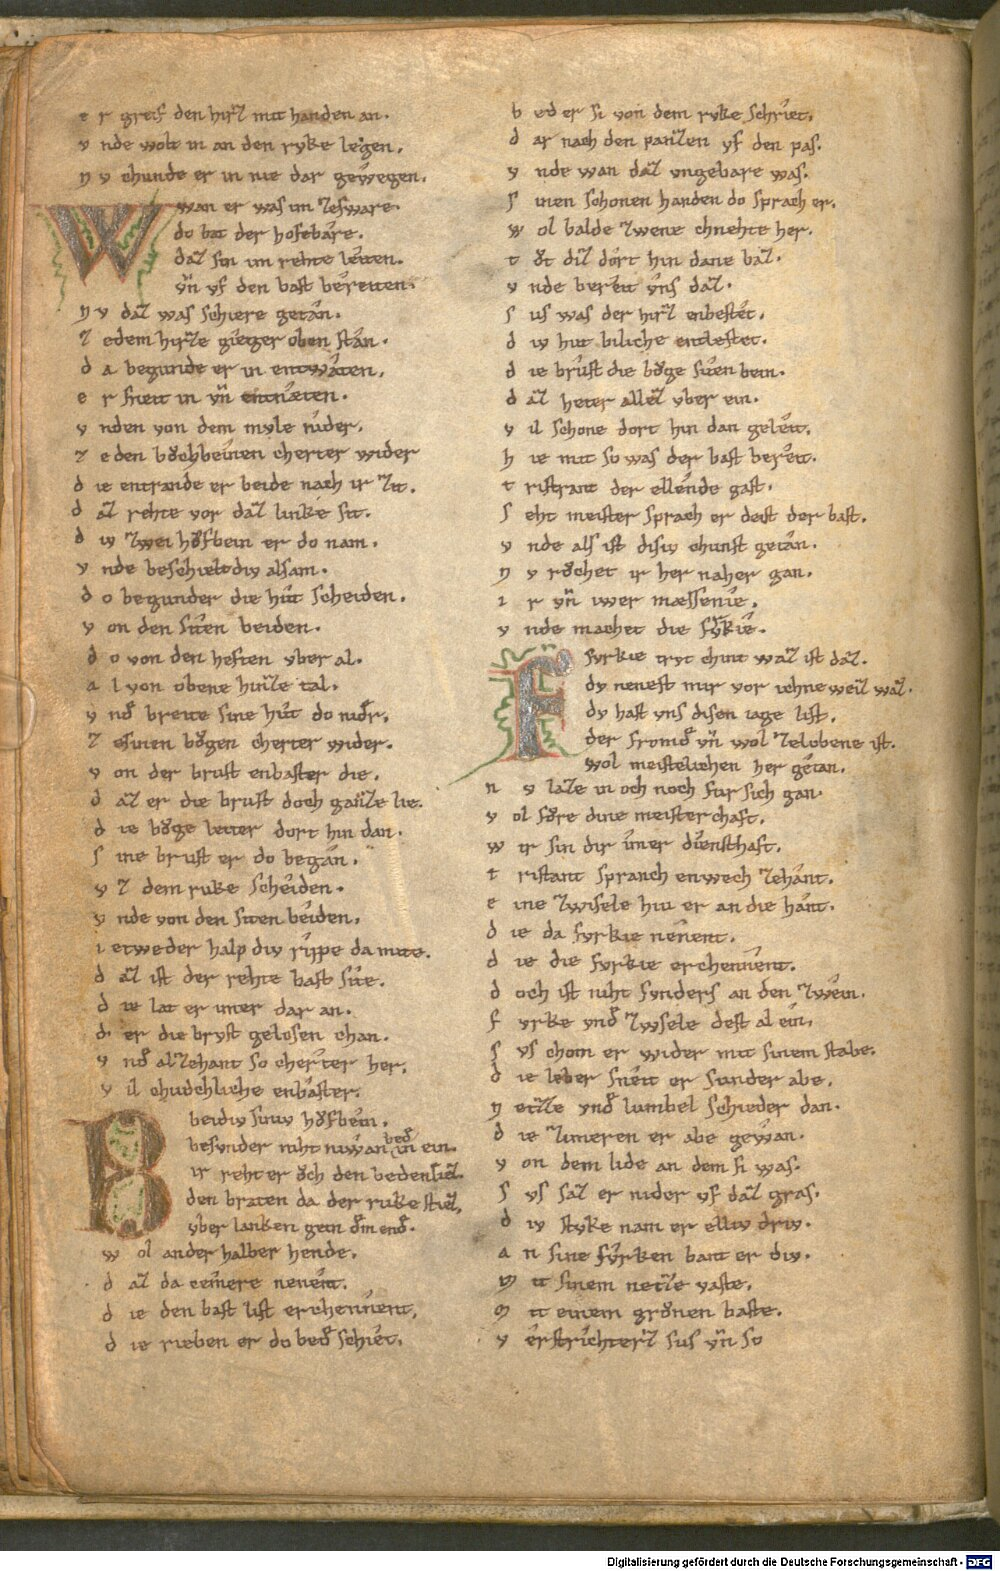 e r greif den hirz mit handen an.
v nde wolt in an den ryke legen.
n v chunde er in nie dar gewegen.
W wan er was im zeswære.
do bat der hofebære.
daz sin im rehte leiten.
vn̄ vf den bast bereiten.
n v daz was schiere getan.
z edem hirze gieger oben stan.
d a begunde er in entwæten.
e r sneit in vn̄ entnæten.
v nden von dem mvle nider.
z e den bv̊chbeinen cherter wider
d ie entrande er beide nach ir zit.
d az rehte vor daz linke sit.
d iv zwei hv̊fbein er do nam.
v nde beschieltdiv alsam.
d o begunder die hůt scheiden.
v on den siten beiden.
d o von den heften vber al.
a l von obene hinze tal.
v nd̾ breite sine hůt do nid̾r.
z esinen bv̊gen cherter wider.
v on der brust enbaster die.
d az er die brust doch ganze lie.
d ie bv̊ge leiter dort hin dan.
s ine brust er do began.
v z dem ruke scheiden.
v nde von den siten beiden.
i etweder halp div rippe da mite.
d az ist der rehte bast site.
d ie lat er imer dar an.
d̾ er die brvst gelosen chan.
v nd̾ alzehant so cherter her.
v il chuchliche enbaster.
B beidiv siniv hv̊fbein.
besvnder niht niwan bed̾ in ein.
ir reht er v̊ch den beden liez.
den braten da der ruke stiez,
vber lanken gein dm̄ end̾.
w ol ander halber hende.
d az da ceimere nenent.
d ie den bast list erchennent,
d ie rieben er do bed̾ schiet.
b ed er si von dem ryke schriet.
d ar nach den panzen vf den pas.
v nde wan daz vngebare was.
s inen schonen handen do sprach er.
w ol balde zwene chnehte her.
t v̊t diz dort hin dane baz.
v nde bereit vns daz.
s us was der hirz enbestet.
d iv hut biliche entlestet.
d ie brust die bv̊ge siten bein.
d az heter allez vber ein.
v il schone dort hin dan geleit.
h ie mit so was der bast bereit.
t ristrant der ellende gast.
s eht meister sprach er deist der bast.
v nde als ist disiv chunst getan.
n v rv̊chet ir her naher gan.
i r vn̄ iwer mæssenie.
v nde machet die fvrkie.
F fvrkie tryt chint waz ist daz.
dv nenest mir vor ichne weiz waz.
dv hast vns disen iage list.
der fromd̾ vn̄ wol zelobene ist.
wol meistelichen her getan.
n v laze in och noch fur sich gan.
v ol fv̊re dine meisterchaft.
w ir sin dir imer diensthaft.
t ristant spranch enwech zehant.
e ine zwisele hiu er an die hant.
d ie da fvrkie nenent.
d ie die fvrkie erchennent.
d och ist niht svnders an den zwein.
f vrke vnd̾ zwisele dest al ein.
s vs chom er wider mit sinem stabe.
d ie leber sneit er sunder abe.
n etze vnd̾ lumbel schieder dan.
d ie zimeren er abe gewan.
v on dem lide an dem si was.
s vs saz er nider vf daz gras.
d iv styke nam er elliv driv.
a n sine fvrken bant er div.
m it sinem netze vaste.
m it einem grv̊nen baste.
v erstrichterz sus vn̄ so
Digitalisierung gefördert durch die Deutsche Forschungsgemeinschaft - DFG